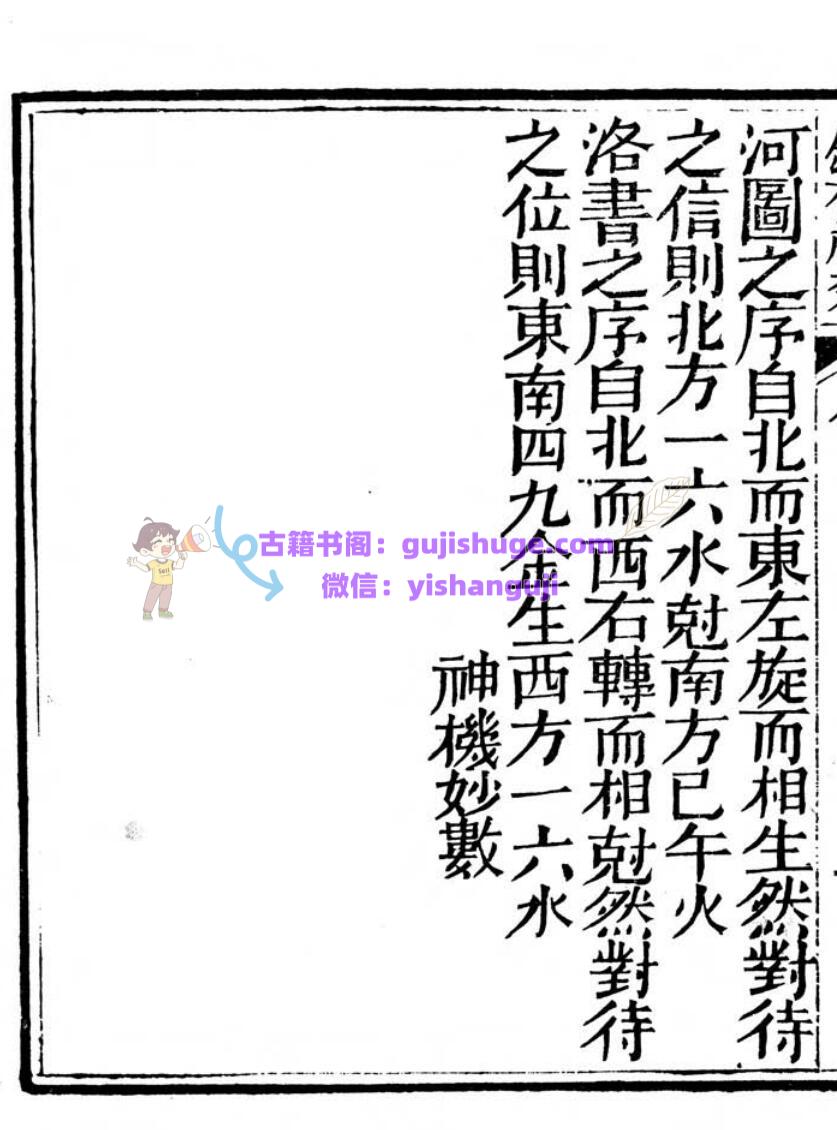 河圖之序自北而東左旋而相生然對待
之信則北方一六水尅南方已午火
洛書之序自北而西右轉而相尅然對待
之位則東南四九金生西方一六水
神機妙數
古籍书阁：gujishuge.com
微信：yishanguji
Sell